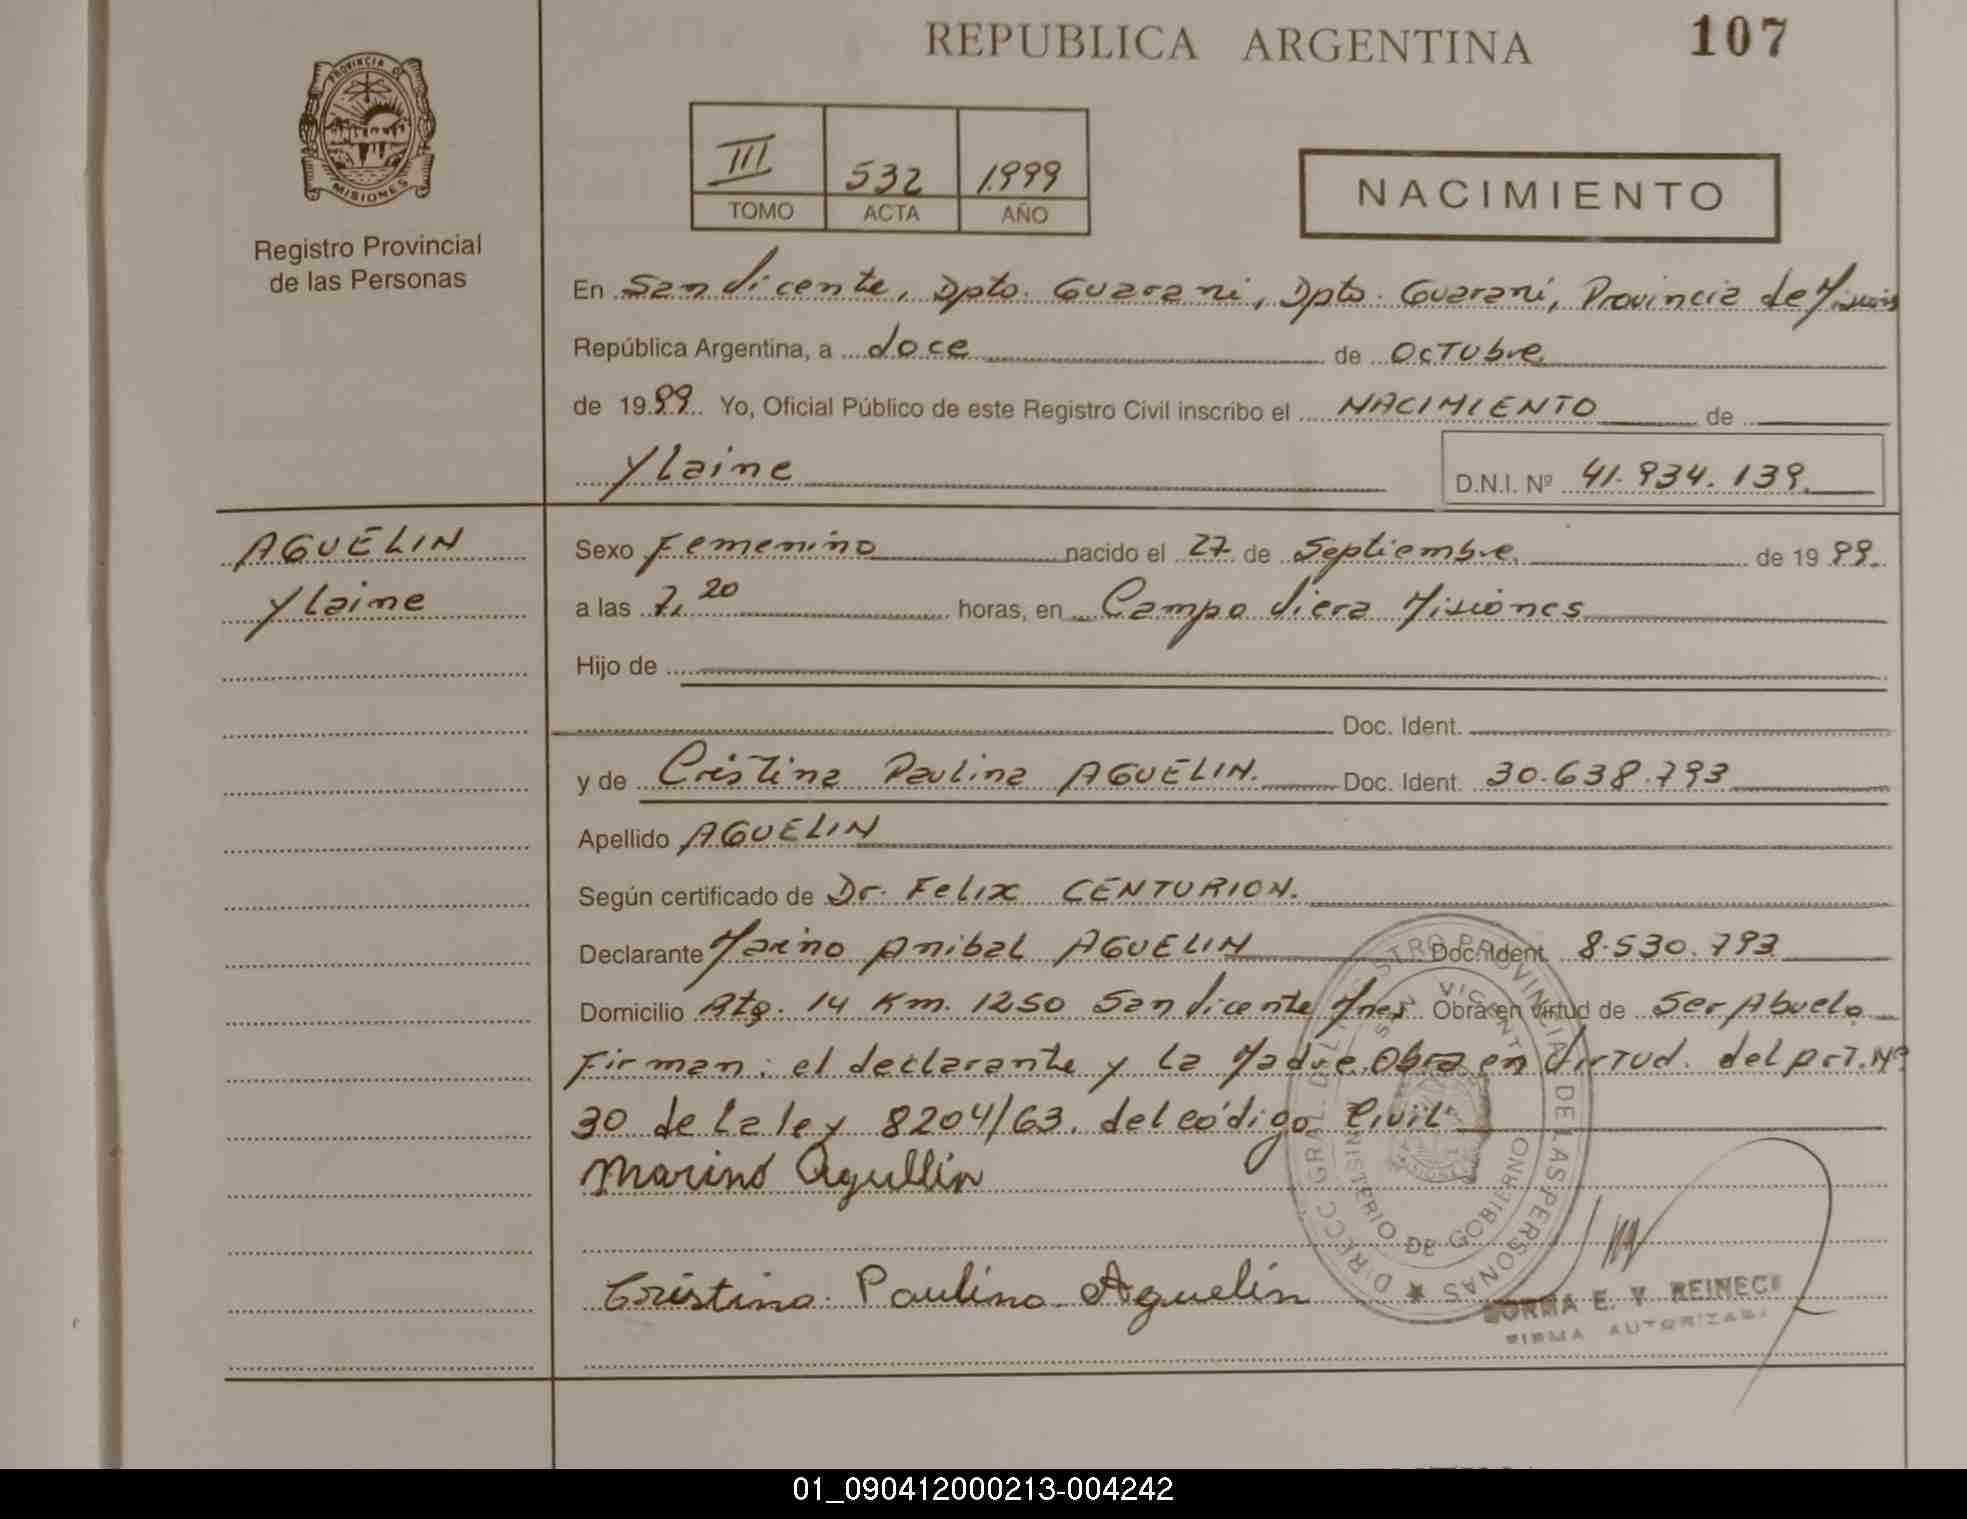 REPUBLICA ARGENTINA
107
PROVINCIA DE
MISIONES
Registro Provincial
de las Personas
III 532 1999
TOMO ACTA AÑO
NACIMIENTO
En San Vicente, Dpto. Guarani, Dpto. Guarani, Provincia de Misiones
República Argentina, a doce de Octubre
de 1999 Yo, Oficial Público de este Registro Civil inscribo el NACIMIENTO de
Ylaine
D.N.I. Nº 41.934.139.
AGUELIN
Ylaine
Sexo Femenino nacido el 27 de Septiembre. de 1999.
a las 7,20 horas, en Campo Viera Misiones
Hijo de
Doc. Ident.
y de Cristina Paulina AGUELIN. Doc. Ident. 30.638.793
Apellido AGUELIN
Según certificado de Dr. Felix CENTURION.
Declarante Marino Anibal AGUELIN Doc. Ident. 8.530.793
Domicilio Km. 1250 San Vicente Mnes Obra en virtud de Ser Abuelo
Firman: el declarante y la Madre. Obra en Virtud. del Art. Nº
30 de la ley 8204/63. del código Civil
Marino Agullin
Cristina Paulina Aguelin
DIRECC. GRAL. DEL REGISTRO PROVINCIAL DE LAS PERSONAS
SAN VICENTE
MINISTERIO DE GOBIERNO
NORMA E. V. REINECK
FIRMA AUTORIZADA
01_090412000213-004242